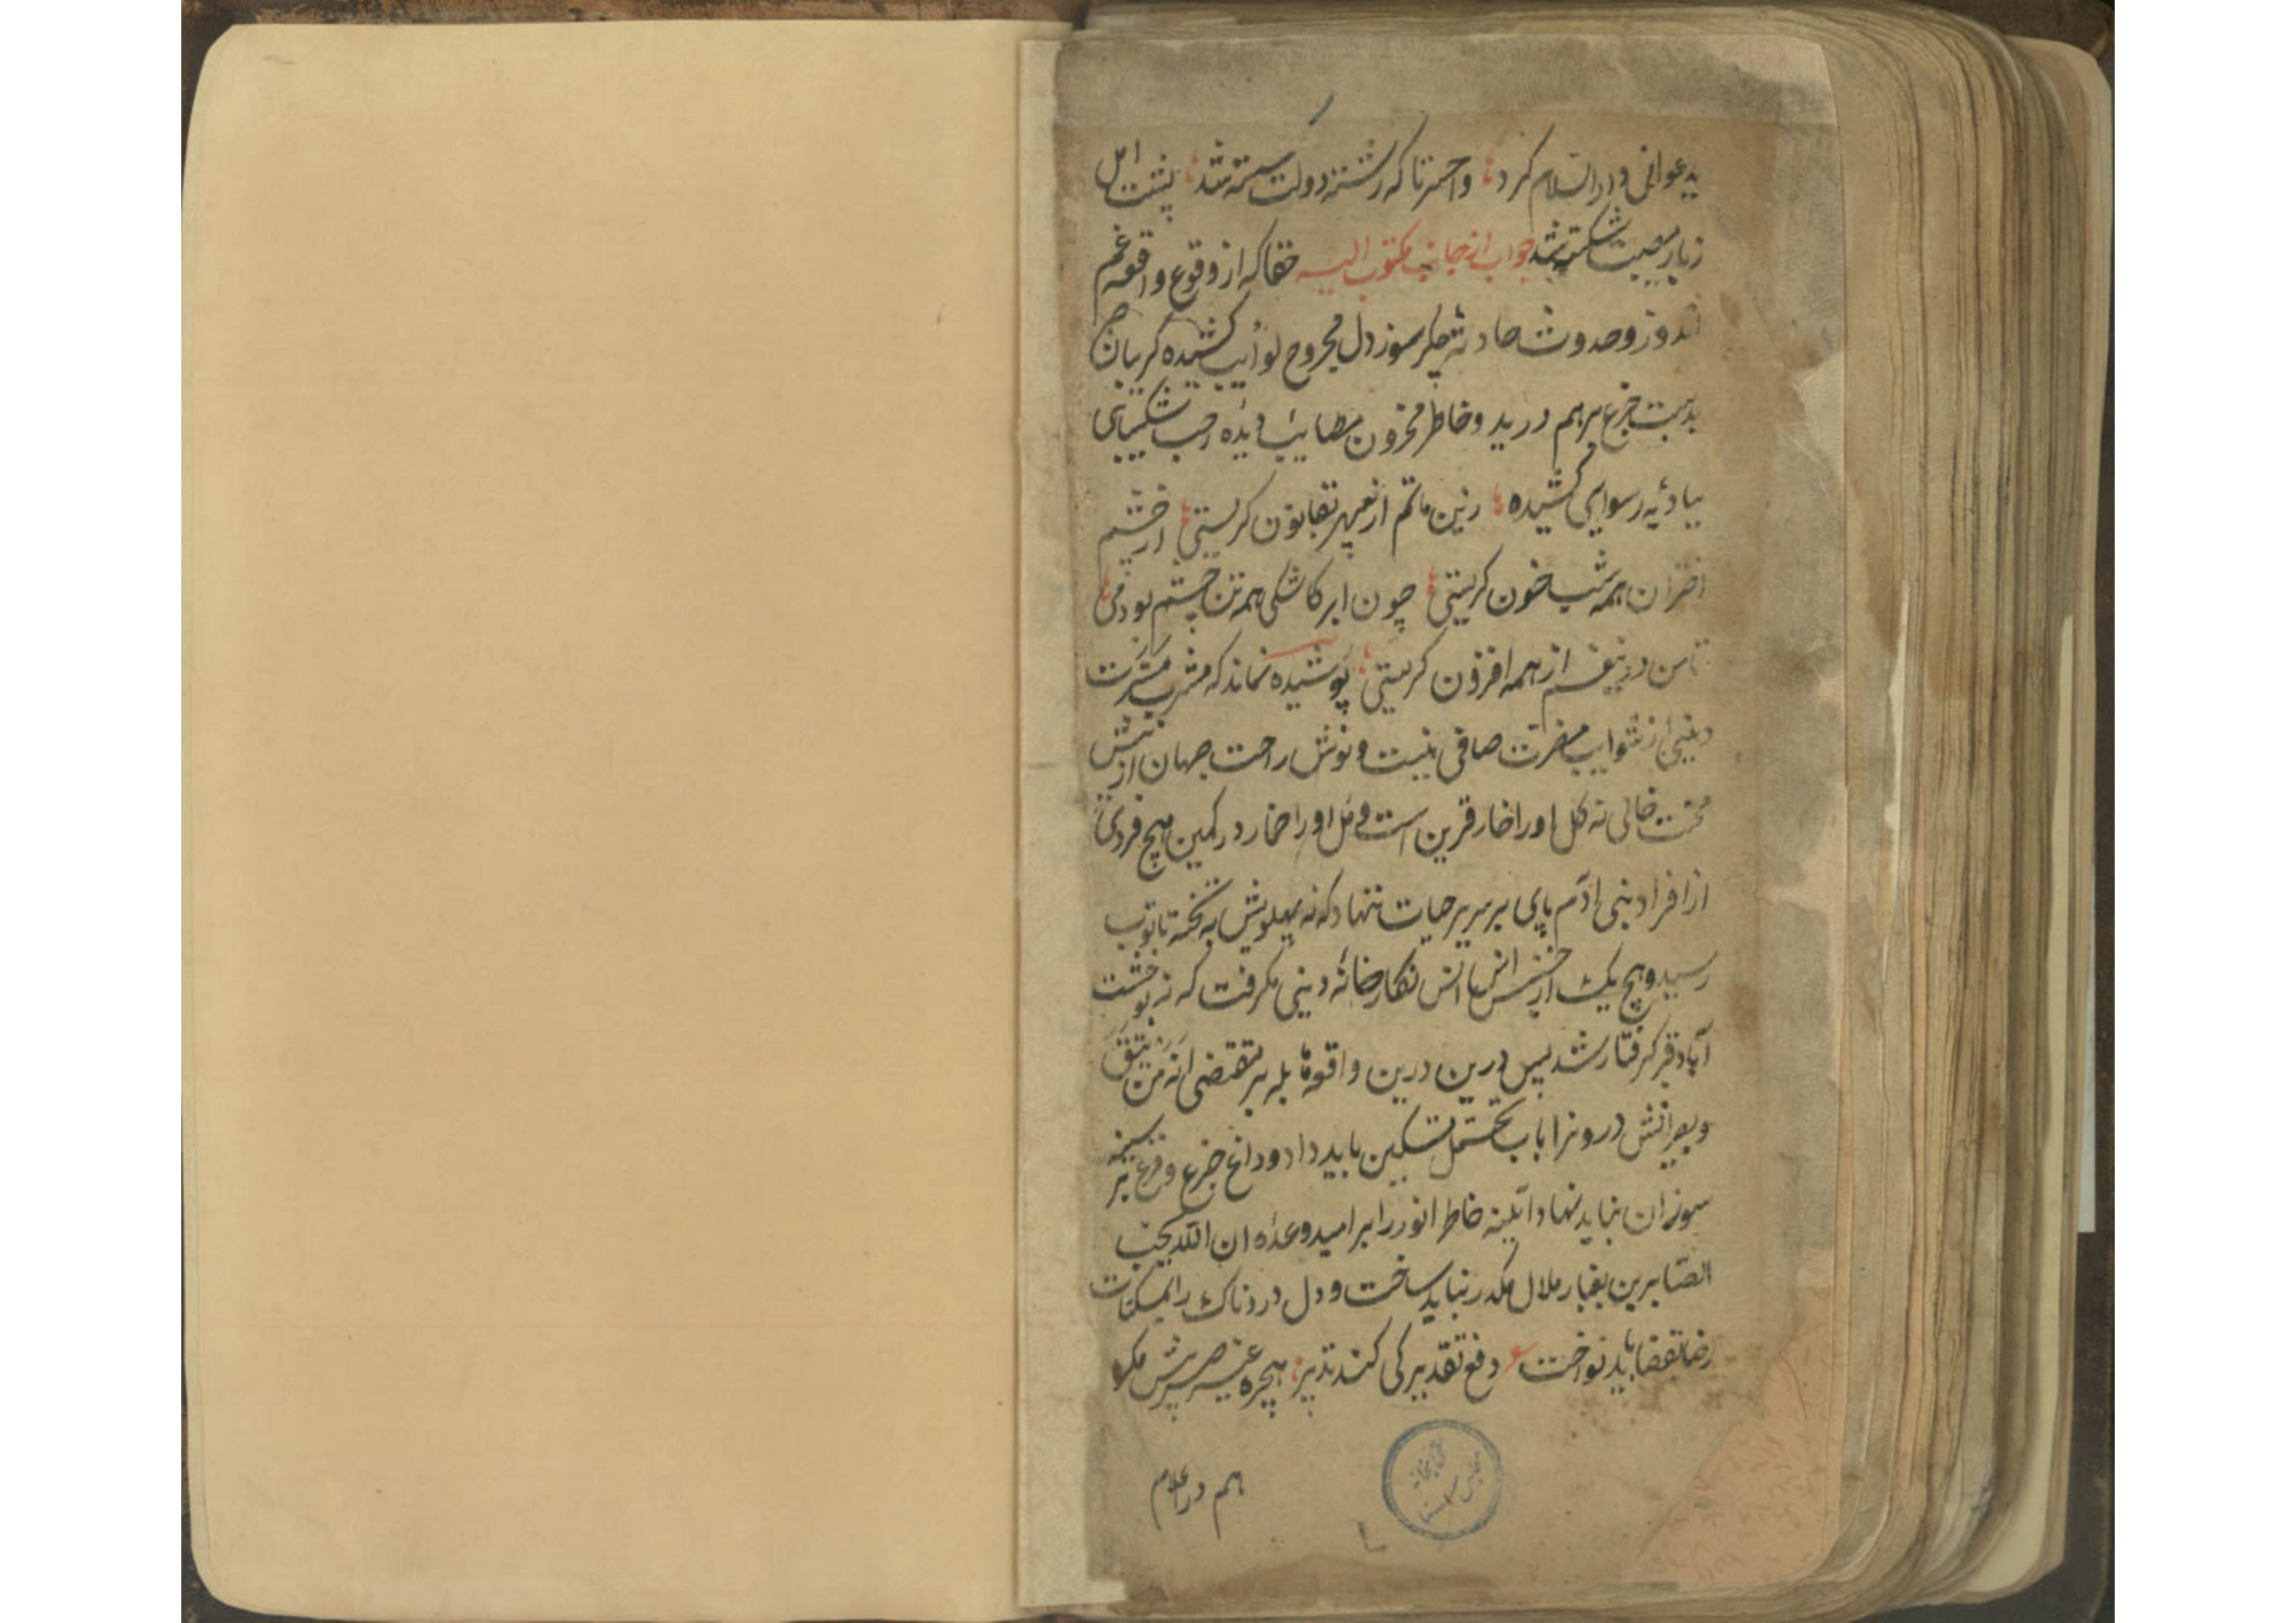 یدعوانی دار السلام کرد؛ واحسرتا که رشته دولت کسسته شد؛ پشت امل
زبار مصیبت شکسته شد جواب از جانب مکتوب الیه حقا که از وقوع واقعه غم
اندوز و حدوث حادثه جکرسوز دل مجروح نوایب کشیده کریبان
بدست جزع برهم درید و خاطر محزون مصایب دیده رخت شکیبائی
ببادیه رسوایی کشیده؛ زین ماتم ار سپهر کریستی؛ از چشم
اختران همه شب خون کریستی؛ چون ابر کاشکی همه تن چشم بودمی؛
تا من درینغم از همه افزون کریستی؛ پوشیده نماند که مشرب مسرت
دینی از شوایب مضرت صافی نیست و نوش راحت جهان از نیش
محنت خالی نه کل او را خار قرین است و مل او را خمار در کمین هیچ فردی
از افراد بنی ادم پای بر سریر حیات ننهاد که نه پهلویش به تخته تابوت
رسید و هیچ یک از جنس انس نکارخانه دینی نکرفت که نه بوحشت
آباد قبر کرفتار شد پس درین درین واقعه هایله بر مقتضی انه من یتق
ویصبر اتش درونرا باب تحمل تسکین باید داد و داغ جزع و فزع بر سینه
سوزان نباید نهاد و آیینه خاطر انور را بر امید وعده ان الله یحب
الصابرین بغبار ملال مکدر نباید ساخت و دل دردناک را بمسکنات
رضا بقضا باید نواخت ع دفع تقدیر کی کند تدبیر؛ بهیچ
هم در اعلام
کتابخانه مجلس